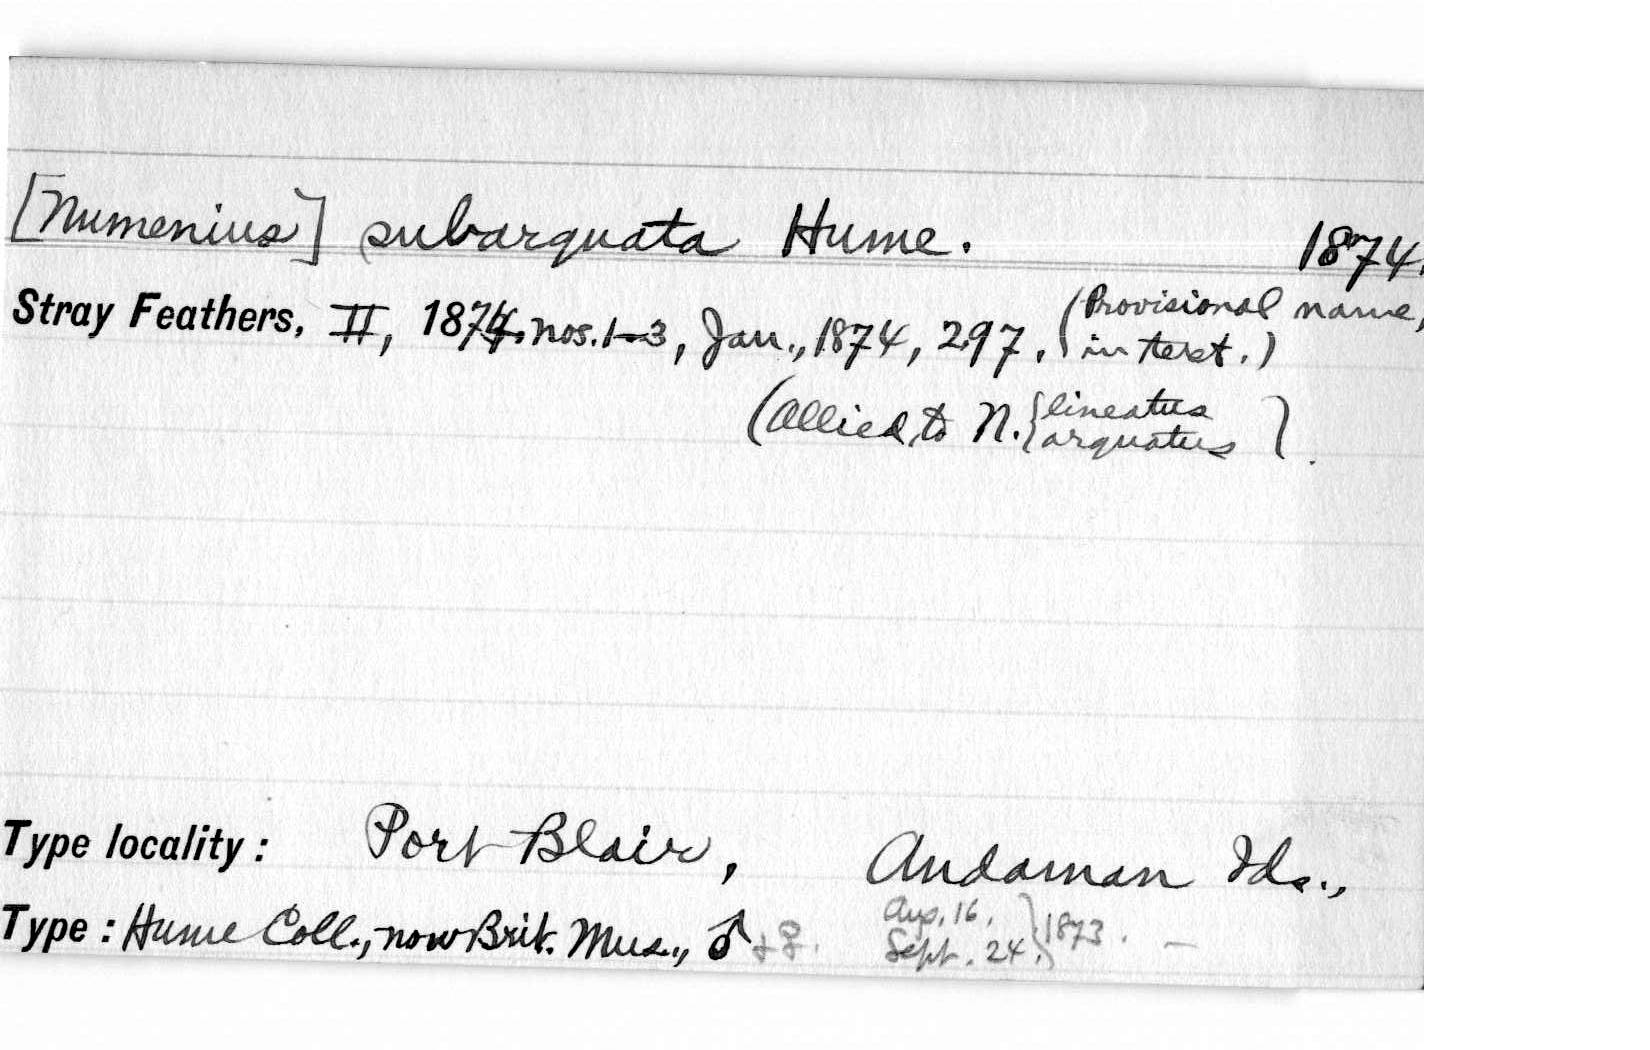 [Numenius] subarquata Hume. 1874.
Stray Feathers, II, 1874, nos. 1–3, Jan., 1874, 297. (Provisional name,
in text.)
(Allied to N. {lineatus
arquatus}.
Type locality: Port Blair, Andaman Ids.,
Type: Hume Coll., now Brit. Mus., ♂ + ♀. Aug. 16, } 1873. —
Sept. 24.